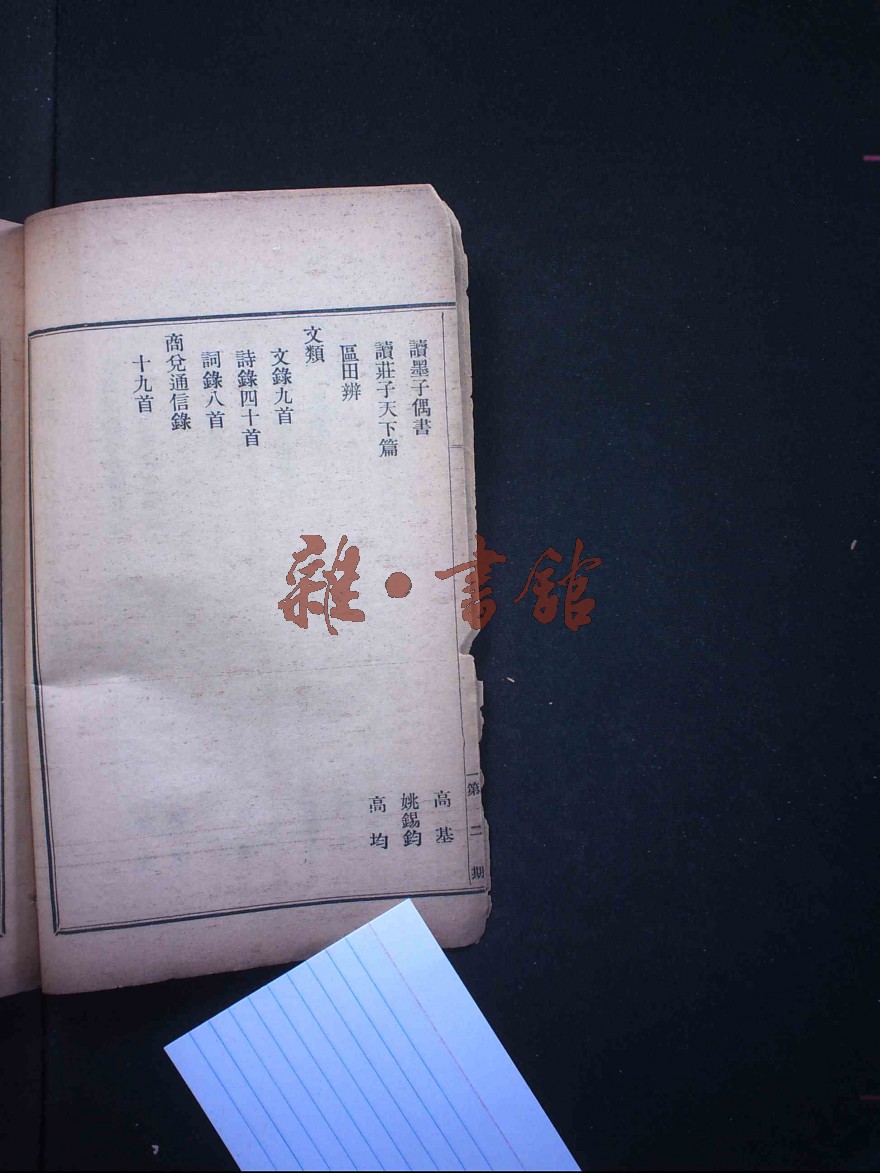 讀墨子偶書 高基
讀莊子天下篇 姚錫鈞
區田辨 高均
文類
文錄九首
詩錄四十首
詞錄八首
商兌通信錄
十九首
第二期
雜·書館